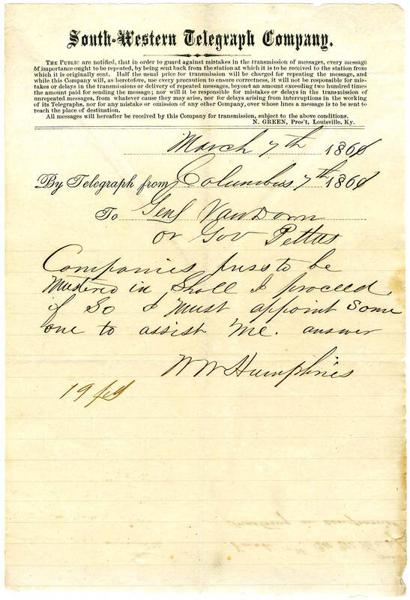 South-Western Telegraph Company.
THE PUBLIC are notified, that in order to guard against mistakes in the transmission of messages, every message
of importance ought to be repeated, by being sent back from the station at which it is to be received to the station from
which it is originally sent. Half the usual price for transmission will be charged for repeating the message, and
while this Company will, as heretofore, use every precaution to ensure correctness, it will not be responsible for mis-
takes or delays in the transmissions or delivery of repeated messages, beyond an amount exceeding two hundred times
the amount paid for sending the message; nor will it be responsible for mistakes or delays in the transmission of
unrepeated messages, from whatever cause they may arise, nor for delays arising from interruptions in the working
of its Telegraphs, nor for any mistake or omission of any other Company, over whose lines a message is to be sent to
reach the place of destination.
All messages hereafter be received by this Company for transmission, subject to the above conditions.
N. GREEN, Pres't, Louisville, Ky.
March 7th 186
By Telegraph from Columbus 7th 186
To Genl Van Dorn
or Gov Pettus
Companies press to be
mustered in shall I proceed
if So I must appoint Some
one to assist me. answer
W W Humphries
19